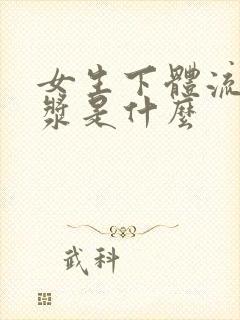 女生下體流
漿是什麼
武科